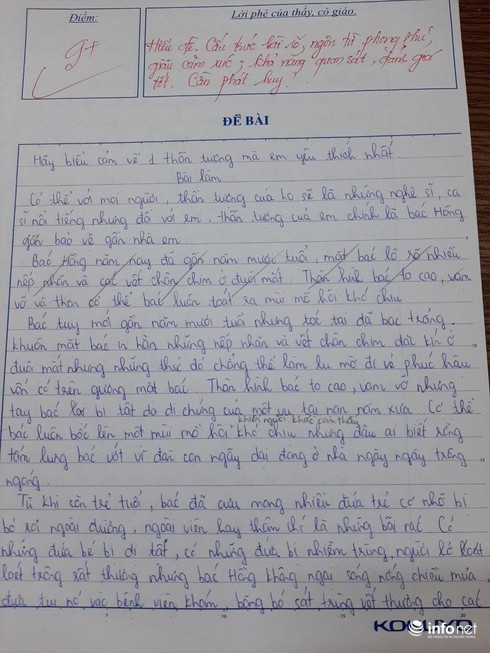 Điểm:
9+
Lời phê của thầy, cô giáo.
Hiểu đề. Cấu trúc bài rõ, ngôn từ phong phú,
giàu cảm xúc; khả năng quan sát, đánh giá
tốt. Cần phát huy!
ĐỀ BÀI
Hãy biểu cảm về 1 thần tượng mà em yêu thích nhất
Bài làm
Có thể với mọi người, thần tượng của họ sẽ là những nghệ sĩ, ca
sĩ nổi tiếng nhưng đối với em, thần tượng của em chính là bác Hồng
bảo vệ gần nhà em.
Bác Hồng năm nay đã gần năm mươi tuổi, mặt bác lộ rõ nhiều
nếp nhăn và các vết chân chim ở đuôi mắt. Thân hình bác to cao, vạm
vỡ và thân cơ thể bác luôn toát ra mùi mồ hôi khó chịu
Bác tuy mới gần năm mươi tuổi nhưng tóc tai đã bạc trắng,
khuôn mặt bác in hằn những nếp nhăn và vết chân chim dài ở
đuôi mắt nhưng những thứ đó chẳng thể làm lu mờ đi vẻ phúc hậu
vốn có trên gương mặt bác. Thân hình bác to cao, vạm vỡ nhưng
tay bác lại bị tật do di chứng của một vụ tai nạn năm xưa. Cơ thể
khiến người khác cảm thấy
bác luôn bốc lên một mùi mồ hôi khó chịu nhưng đâu ai biết rằng
tấm lưng bác vất vả dài con ngày dài đằng ở nhà ngày ngày trông
ngóng.
Từ khi còn trẻ tuổi, bác đã cưu mang nhiều đứa trẻ cơ nhỡ bị
bỏ rơi ngoài đường, ngoài viện hay thậm chí là những bãi rác. Có
những đứa bé bị dị tật, có những đứa bị nhiễm trùng, người lở loét
loét trông rất thương nhưng bác Hồng không ngại sáng, nóng chiều mưa
đưa tụi nó vào bệnh viện khám, băng bó sát trùng vết thương cho các
KOKUYO
infonet